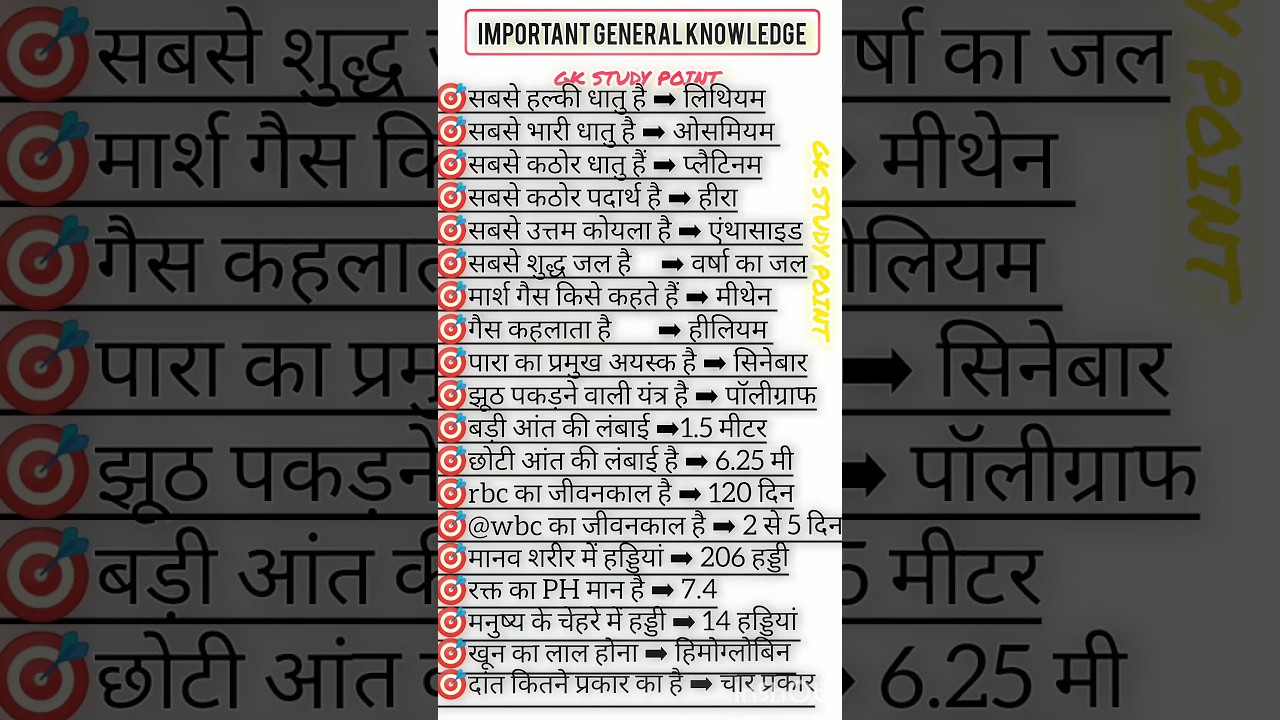 IMPORTANT GENERAL KNOWLEDGE
GK STUDY POINT
🎯सबसे हल्की धातु है ➡ लिथियम
🎯सबसे भारी धातु है ➡ ओसमियम
🎯सबसे कठोर धातु हैं ➡ प्लैटिनम
🎯सबसे कठोर पदार्थ है ➡ हीरा
🎯सबसे उत्तम कोयला है ➡ एंथासाइड
🎯सबसे शुद्ध जल है ➡ वर्षा का जल
🎯मार्श गैस किसे कहते हैं ➡ मीथेन
🎯गैस कहलाता है ➡ हीलियम
🎯पारा का प्रमुख अयस्क है ➡ सिनेबार
🎯झूठ पकड़ने वाली यंत्र है ➡ पॉलीग्राफ
🎯बड़ी आंत की लंबाई ➡1.5 मीटर
🎯छोटी आंत की लंबाई है ➡ 6.25 मी
🎯rbc का जीवनकाल है ➡ 120 दिन
🎯@wbc का जीवनकाल है ➡ 2 से 5 दिन
🎯मानव शरीर में हड्डियां ➡ 206 हड्डी
🎯रक्त का PH मान है ➡ 7.4
🎯मनुष्य के चेहरे में हड्डी ➡ 14 हड्डियां
🎯खून का लाल होना ➡ हिमोग्लोबिन
🎯दांत कितने प्रकार का है ➡ चार प्रकार
GK STUDY POINT
🎯सबसे शुद्ध
वर्षा का जल
🎯मार्श गैस
मीथेन
🎯गैस
🎯पारा का
➡ सिनेबार
🎯झूठ पकड़ने
➡ पॉलीग्राफ
🎯बड़ी आंत
मीटर
🎯छोटी आंत
6.25 मी
POINT